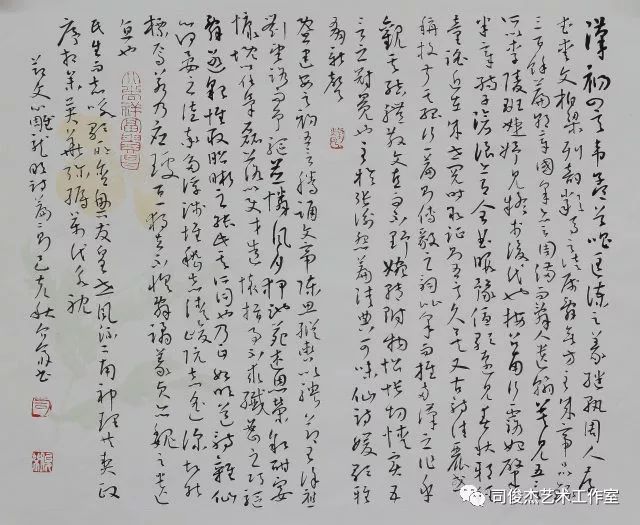 漢初四言韋孟首唱匡諫之義繼軌周人孝
武愛文柏梁列韻嚴馬之徒屬辭無方至成帝品錄
三百餘篇朝章國采亦云周備而辭人遺翰莫見五言
所以李陵班婕妤見疑於後代也按召南行露始肇
半章孺子滄浪亦有全曲暇豫優歌遠見春秋邪徑
童謠近在成世閱時取證則五言久矣又古詩佳麗或
稱枚叔其孤竹一篇則傅毅之詞比采而推兩漢之作乎
觀其結體散文直而不野婉轉附物怊悵切情實五
言之冠冕也至於張衡怨篇清典可味仙詩緩歌雅
有新聲
暨建安之初五言騰踊文帝陳思縱轡以騁節王徐應
劉望路而爭驅並憐風月狎池苑述恩榮敘酣宴
慷慨以任氣磊落以使才造懷指事不求纖密之巧驅
辭逐貌惟取昭晰之能此其所同也乃正始明道詩雜仙
心何晏之徒率多浮淺唯嵇志清峻阮旨遙深故能
標焉若乃應璩百一獨立不懼辭譎義貞亦魏之遺
直也
民生而志咏歌所含興發皇世風流二南神理共契政
序相參英華彌縟萬代永耽
文心雕龍明詩篇 己亥秋 書
司俊杰艺术工作室